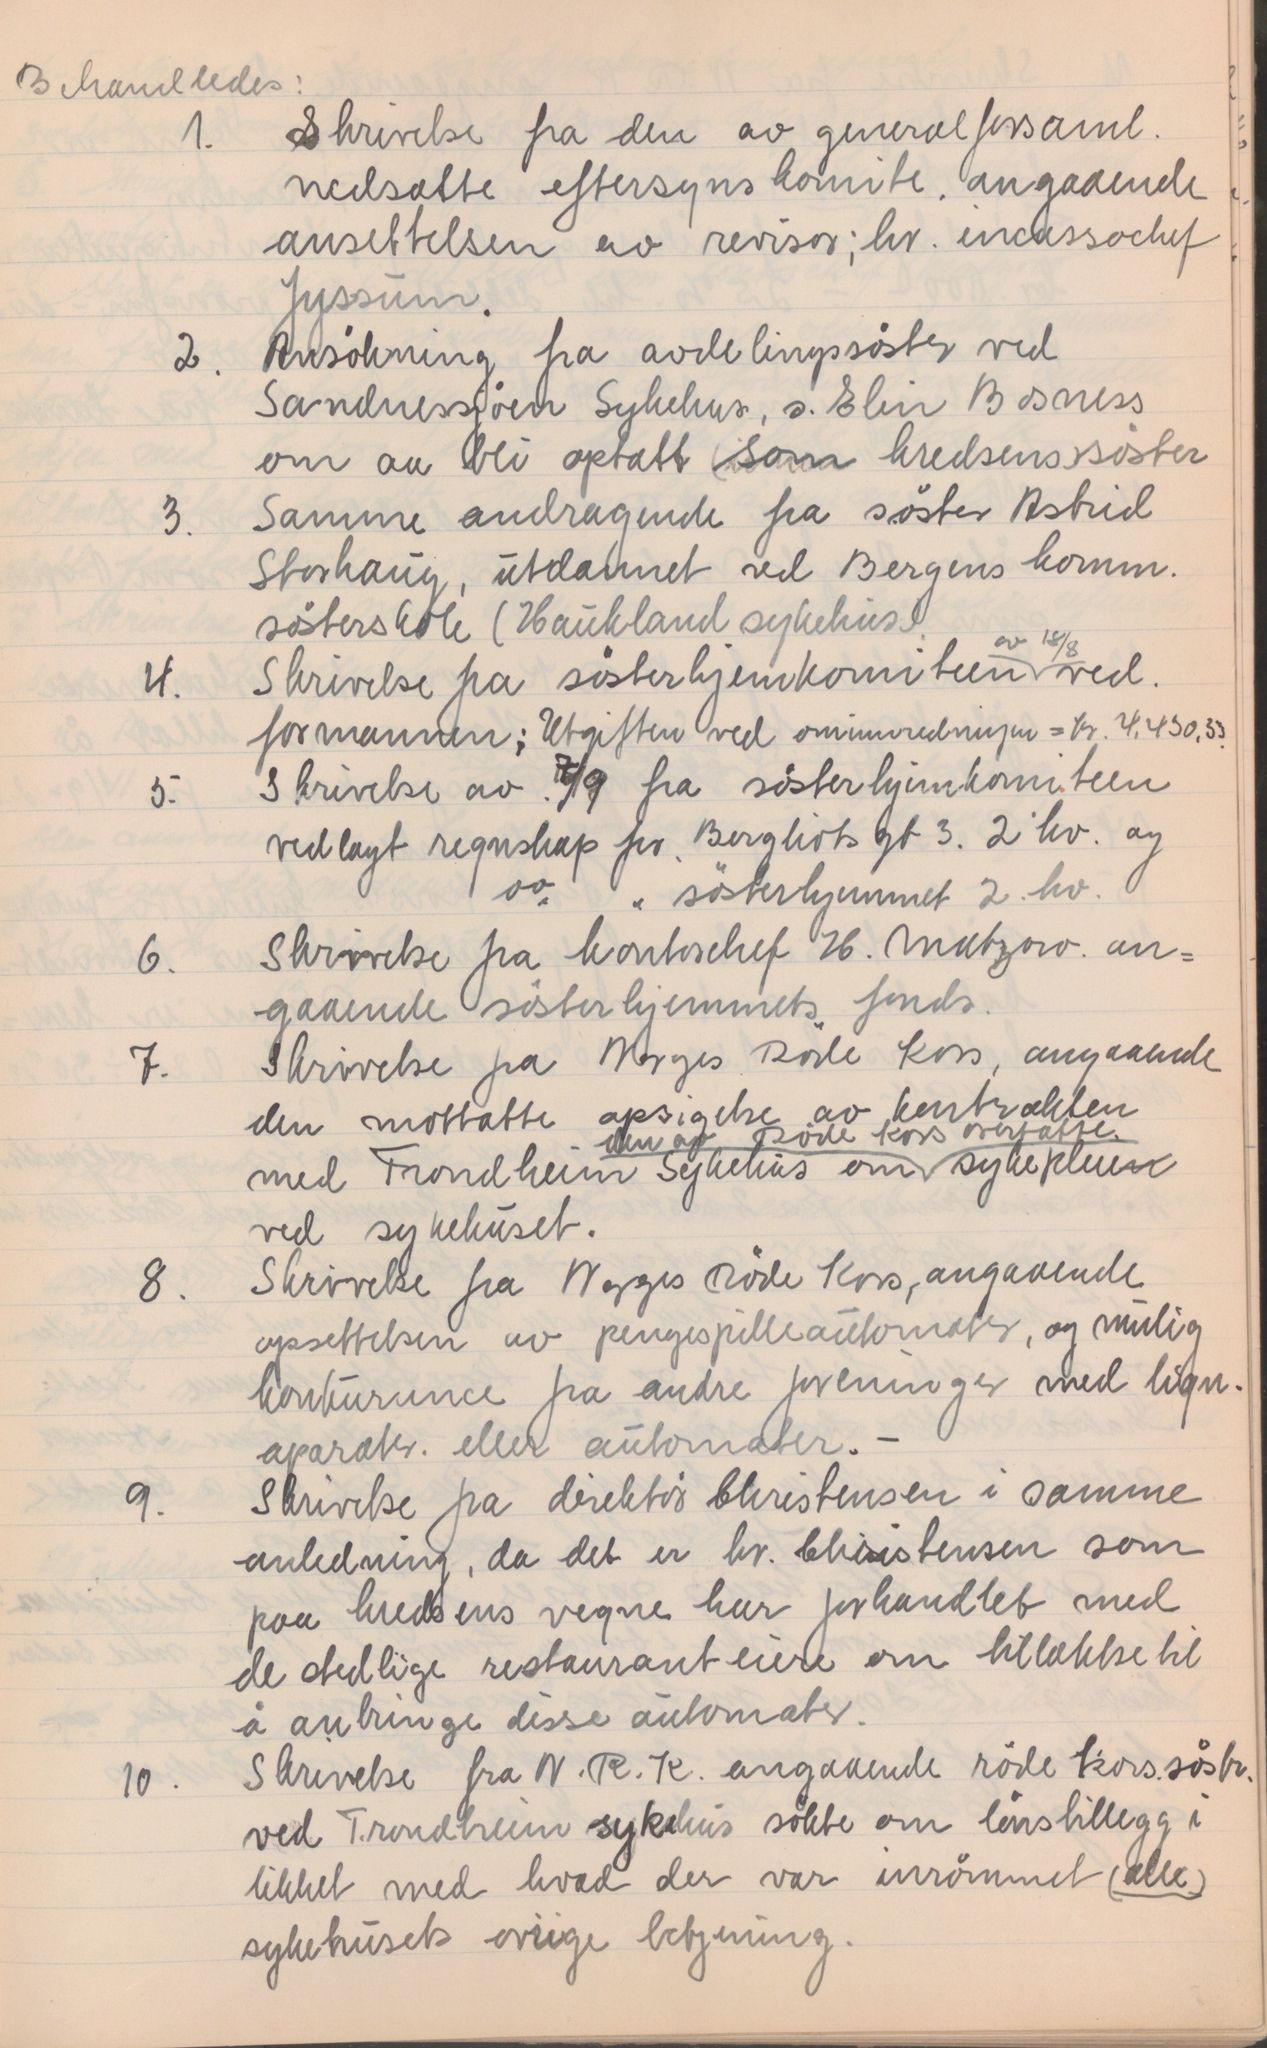 Behandledes:
1. Skrivelse fra den av generalforsaml.
nedsatte eftersynskomite. angaaende
ansettelsen av revisor; hr. incassochef
Jyssum.
2. Ansökning fra avdelingssöster ved
Sandnessjöen Sykehus, s. Elin Bosness
om aa bli optatt som kredsenssöster
3. Samme andragende fra söster Astrid
Storhaug, utdannet ved Bergens komm.
sösterskole (Haukland sykehus)
4. Skrivelse fra sösterhjemkomiteen av 18/8 ved.
formannen; Utgiften ved ominnredningen = kr. 4.430,53.
5. Skrivelse av 7/9 fra sösterhjemkomiteen
vedlagt regnskap for. Bergliots gt 3. 2 hv. og
do. " sösterhjemmet 2. hv.
6. Skrivelse fra kontorchef H. Matzow. an=
gaaende sösterhjemmets fonds.
7. Skrivelse fra Norges Röde Kors, angaaende
den mottatte opsigelse av kontrakten
den av Röde Kors overfatte
med Trondheim Sykehus om sykepleien
ved sykehuset.
8. Skrivelse fra Norges Röde Kors, angaaende
opsettelsen av pengespilleautomater, og mulig
konkurunce fra andre foreninger med lign.
aparater. eller automater. -
9. Skrivelse fra direktör Christensen i samme
anledning, da det er hr. Christensen som
paa kredsens vegne har forhandlet med
de stedlige restauranteiere om tillatelse til
å anbringe disse automater.
10. Skrivelse fra N.R.K. angaaende röde kors.söstr.
ved Trondheim sykehus sökte om lönstillegg i
likhet med hvad der var inrömmet (alle)
sykehusets övrige betjening.